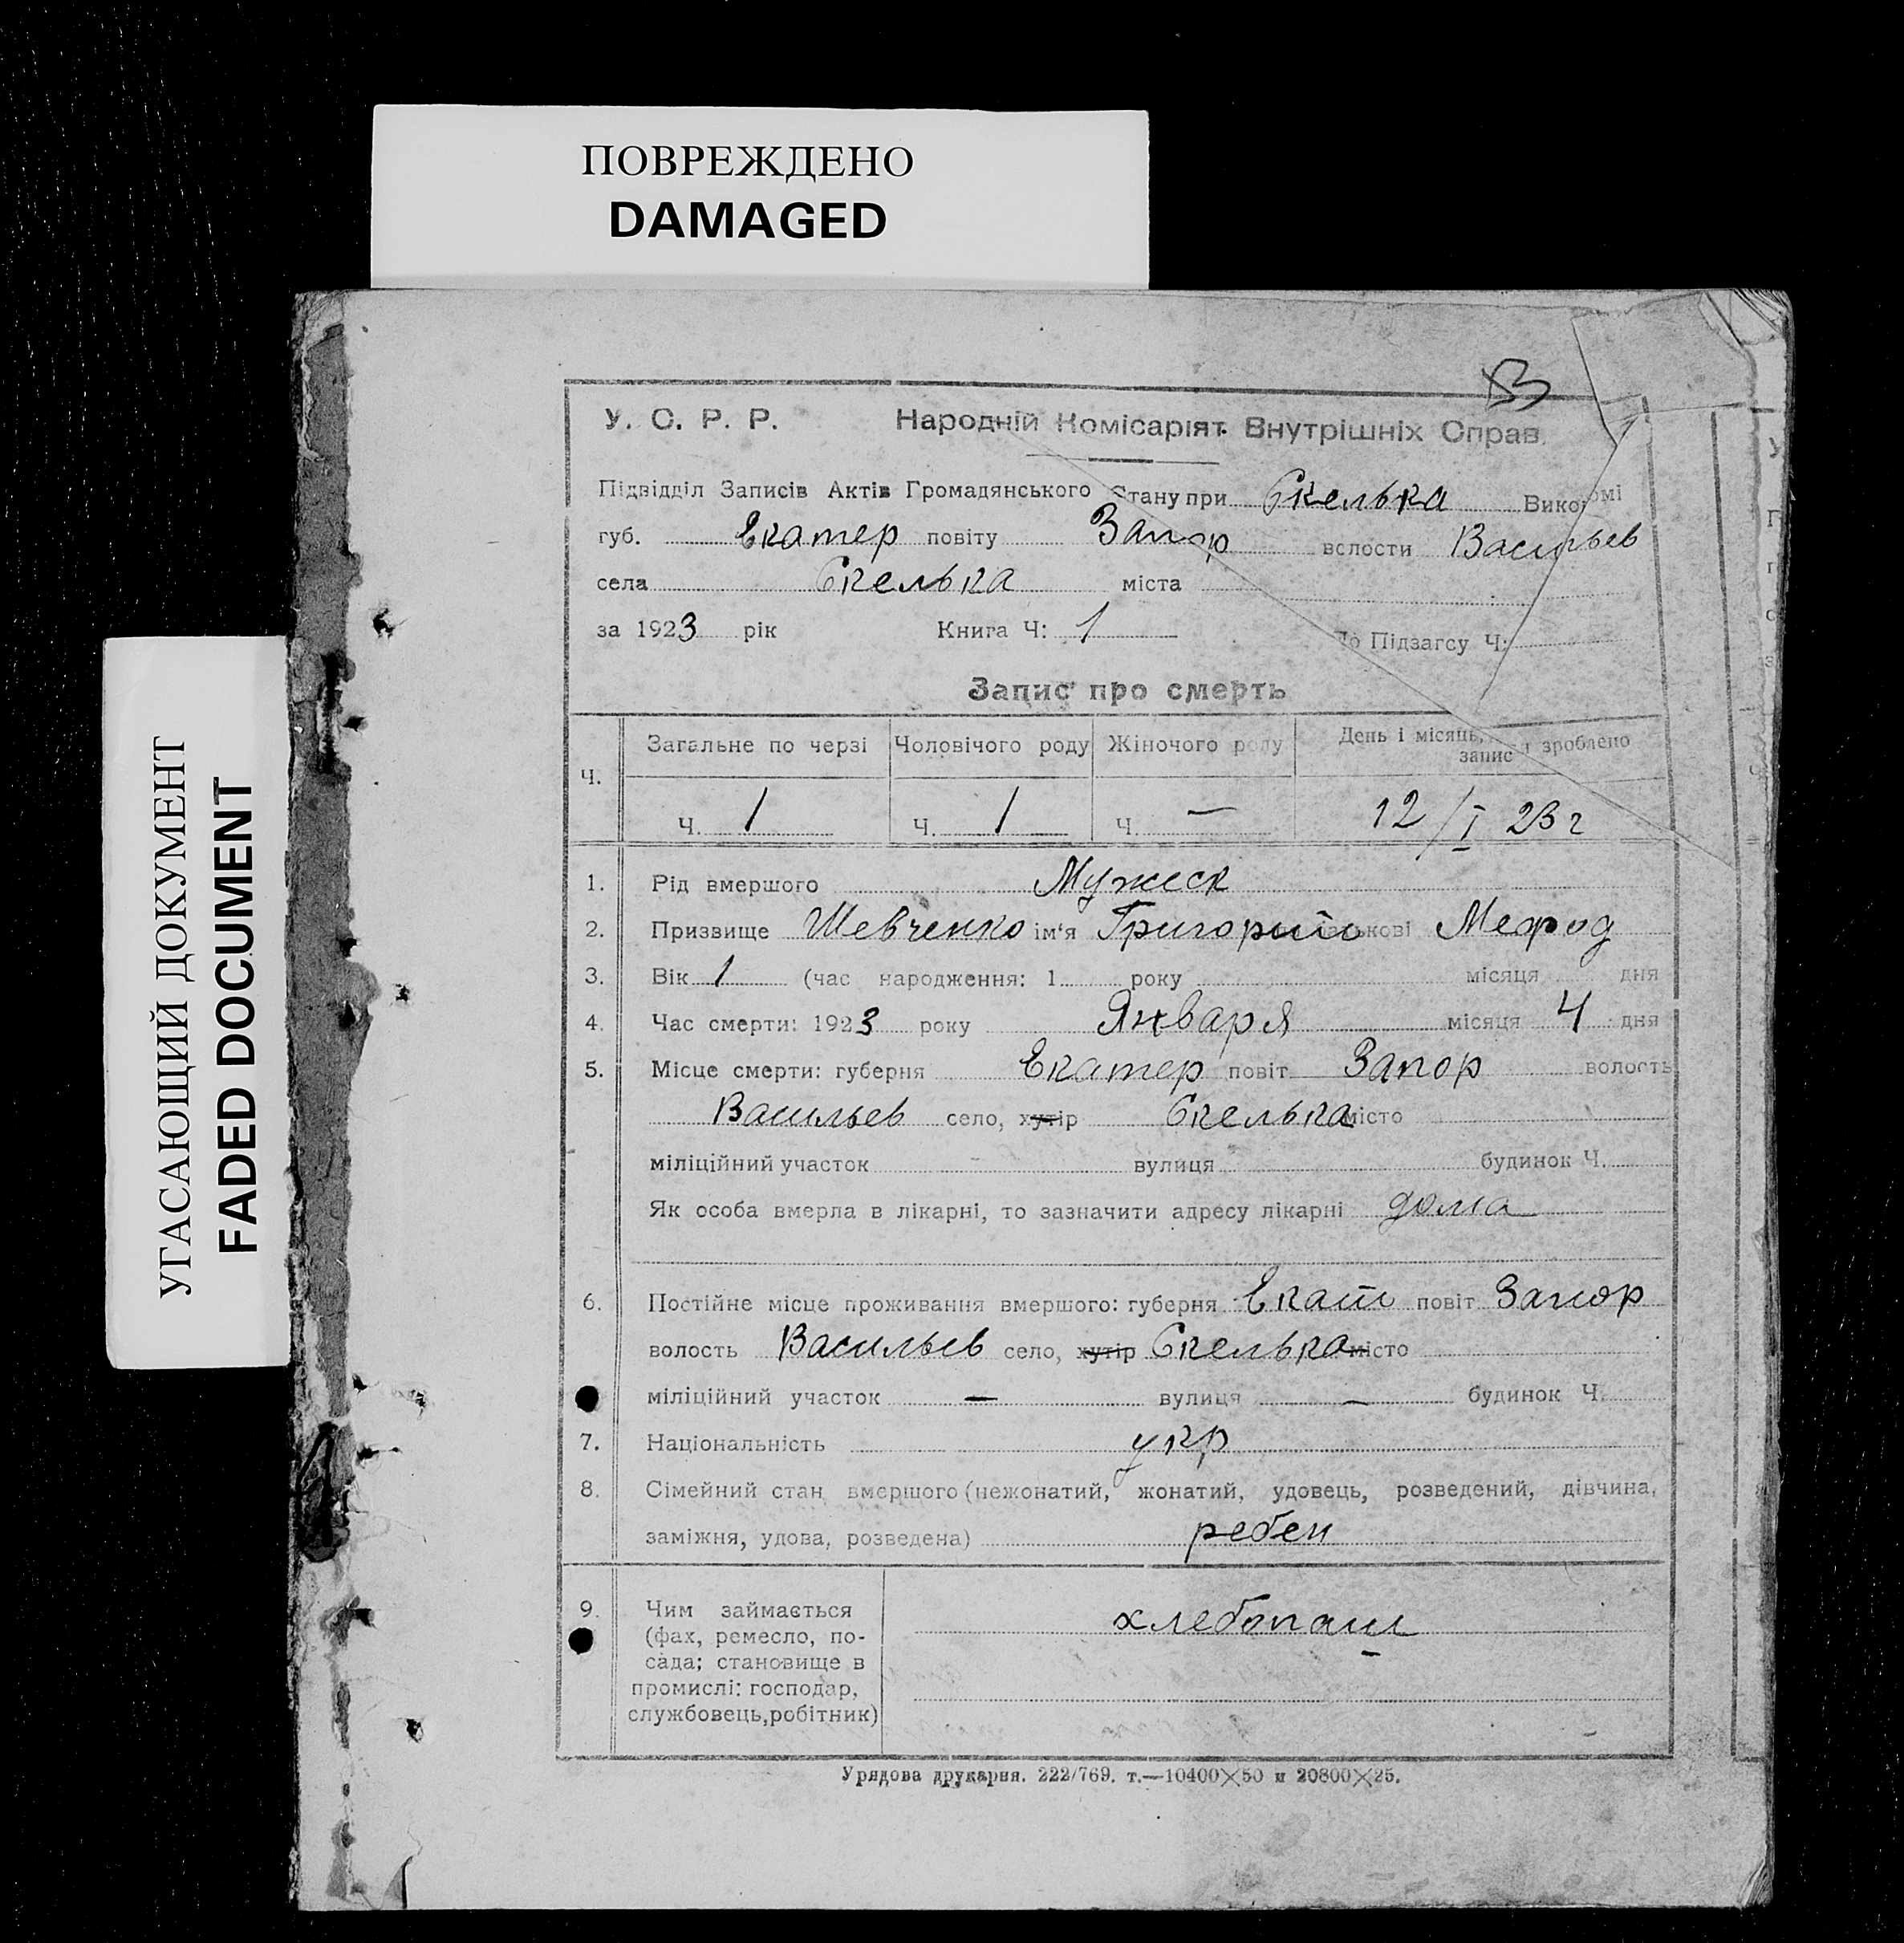 ПОВРЕЖДЕНО
DAMAGED
УГАСАЮЩИЙ ДОКУМЕНТ
FADED DOCUMENT
У. С. Р. Р. Народній Комісаріят Внутрішніх Справ.
Підвідділ Записів Актів Громадянського Стану при Скелька Вико омі
губ. Екатер повіту Запор волости Васильев
села Скелька міста
за 1923 рік Книга Ч: 1 До Підзагсу Ч:
Запис про смерть
Ч. Загальне по черзі Чоловічого роду Жіночого роду День і місяць, запис зроблено
Ч. 1 Ч. 1 Ч. — 12/I 23 г
1. Рід вмершого Мужеск
2. Призвище Шевченко ім'я Григорий батькові Мефод
3. Вік 1 (час народження: 1 року місяця дня
4. Час смерти: 1923 року Января місяця 4 дня
5. Місце смерти: губерня Екатер повіт Запор волость
Васильев село, хутір Скелька місто
міліційний участок вулиця будинок Ч.
Як особа вмерла в лікарні, то зазначити адресу лікарні дома
6. Постійне місце проживання вмершого: губерня Екат повіт Запор
волость Васильев село, хутір Скелька місто
міліційний участок — вулиця — будинок Ч.
7. Національність укр
8. Сімейний стан вмершого (нежонатий, жонатий, удовець, розведений, дівчина,
заміжня, удова, розведена) ребен
9. Чим займається хлебопаш
(фах, ремесло, по-
сада; становище в
промислі: господар,
службовець, робітник)
Урядова друкарня. 222/769. т.—10400×50 и 20800×25.